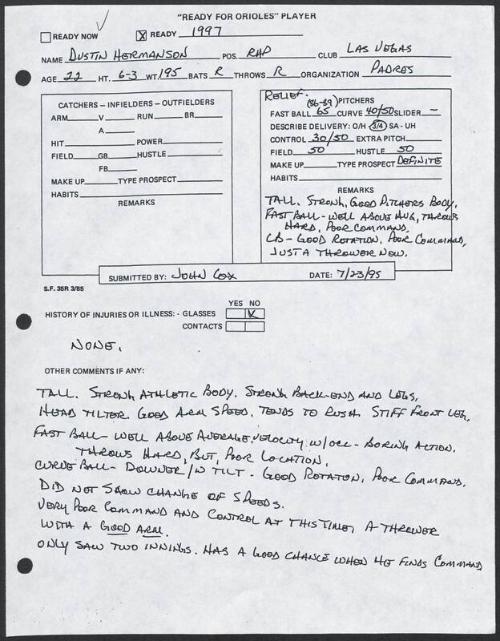 "READY FOR ORIOLES" PLAYER
READY NOW READY 1997
NAME DUSTIN HERMANSON POS. RHP CLUB LAS VEGAS
AGE 22 HT. 6-3 WT. 195 BATS R THROWS R ORGANIZATION PADRES
CATCHERS – INFIELDERS – OUTFIELDERS
ARM V RUN BR
A
HIT POWER
FIELD GB HUSTLE
FB
MAKE UP TYPE PROSPECT
HABITS
REMARKS
RELIEF.
(86-89) PITCHERS
FAST BALL 65 CURVE 40/50 SLIDER –
DESCRIBE DELIVERY: O/H 3/4 SA - UH
CONTROL 30/50 EXTRA PITCH
FIELD 50 HUSTLE 50
MAKE UP TYPE PROSPECT DEFINITE
HABITS
REMARKS
TALL. STRONG, GOOD PITCHERS BODY,
FAST BALL - WELL ABOVE AVG, THROWS
HARD, POOR COMMAND.
CB - GOOD ROTATION, POOR COMMAND,
JUST A THROWER NOW.
SUBMITTED BY: JOHN COX DATE: 7/23/95
S.F. 35R 3/85
YES NO
HISTORY OF INJURIES OR ILLNESS: - GLASSES
CONTACTS
NONE.
OTHER COMMENTS IF ANY:
TALL. STRONG ATHLETIC BODY. STRONG BACK-END AND LEGS,
HEAD TILTER GOOD ARM SPEED, TENDS TO RUSH. STIFF FRONT LEG,
FAST BALL - WELL ABOVE AVERAGE, VELOCITY W/OCC - BORING ACTION.
THROWS HARD, BUT, POOR LOCATION,
CURVE BALL - DOWNER/W TILT - GOOD ROTATON, POOR COMMAND,
DID NOT SHOW CHANGE OF SPEEDS.
VERY POOR COMMAND AND CONTROL AT THIS TIME, A THROWER
WITH A GOOD ARM.
ONLY SAW TWO INNINGS. HAS A GOOD CHANCE WHEN HE FINDS COMMAND